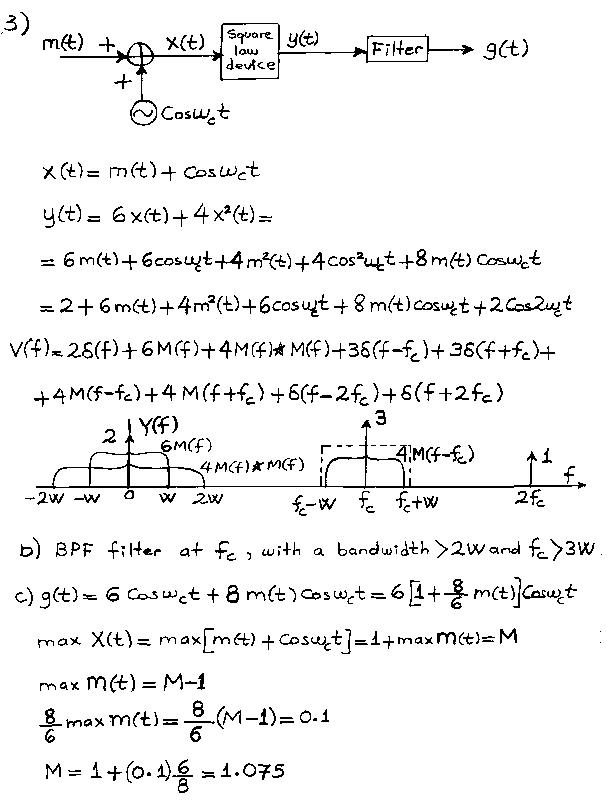 3)
m(t) + x(t) Square law device y(t) Filter g(t)
+
Cosω_ct
x(t) = m(t) + cosω_ct
y(t) = 6x(t) + 4x²(t) =
= 6m(t) + 6cosω_ct + 4m²(t) + 4cos²ω_ct + 8m(t) Cosω_ct
= 2 + 6m(t) + 4m²(t) + 6cosω_ct + 8m(t)cosω_ct + 2Cos2ω_ct
V(f) = 2δ(f) + 6M(f) + 4M(f)*M(f) + 3δ(f-f_c) + 3δ(f+f_c) +
+ 4M(f-f_c) + 4M(f+f_c) + δ(f-2f_c) + δ(f+2f_c)
2 Y(f) 3
6M(f) 4M(f)*M(f) 4M(f-f_c) 1 f
-2W -W 0 W 2W f_c-W f_c f_c+W 2f_c
b) BPF filter at f_c, with a bandwidth > 2W and f_c > 3W.
c) g(t) = 6 Cosω_ct + 8m(t)Cosω_ct = 6[1 + 8/6 m(t)]Cosω_ct
max X(t) = max[m(t) + Cosω_ct] = 1 + max m(t) = M
max m(t) = M-1
8/6 max m(t) = 8/6 (M-1) = 0.1
M = 1 + (0.1) 6/8 = 1.075